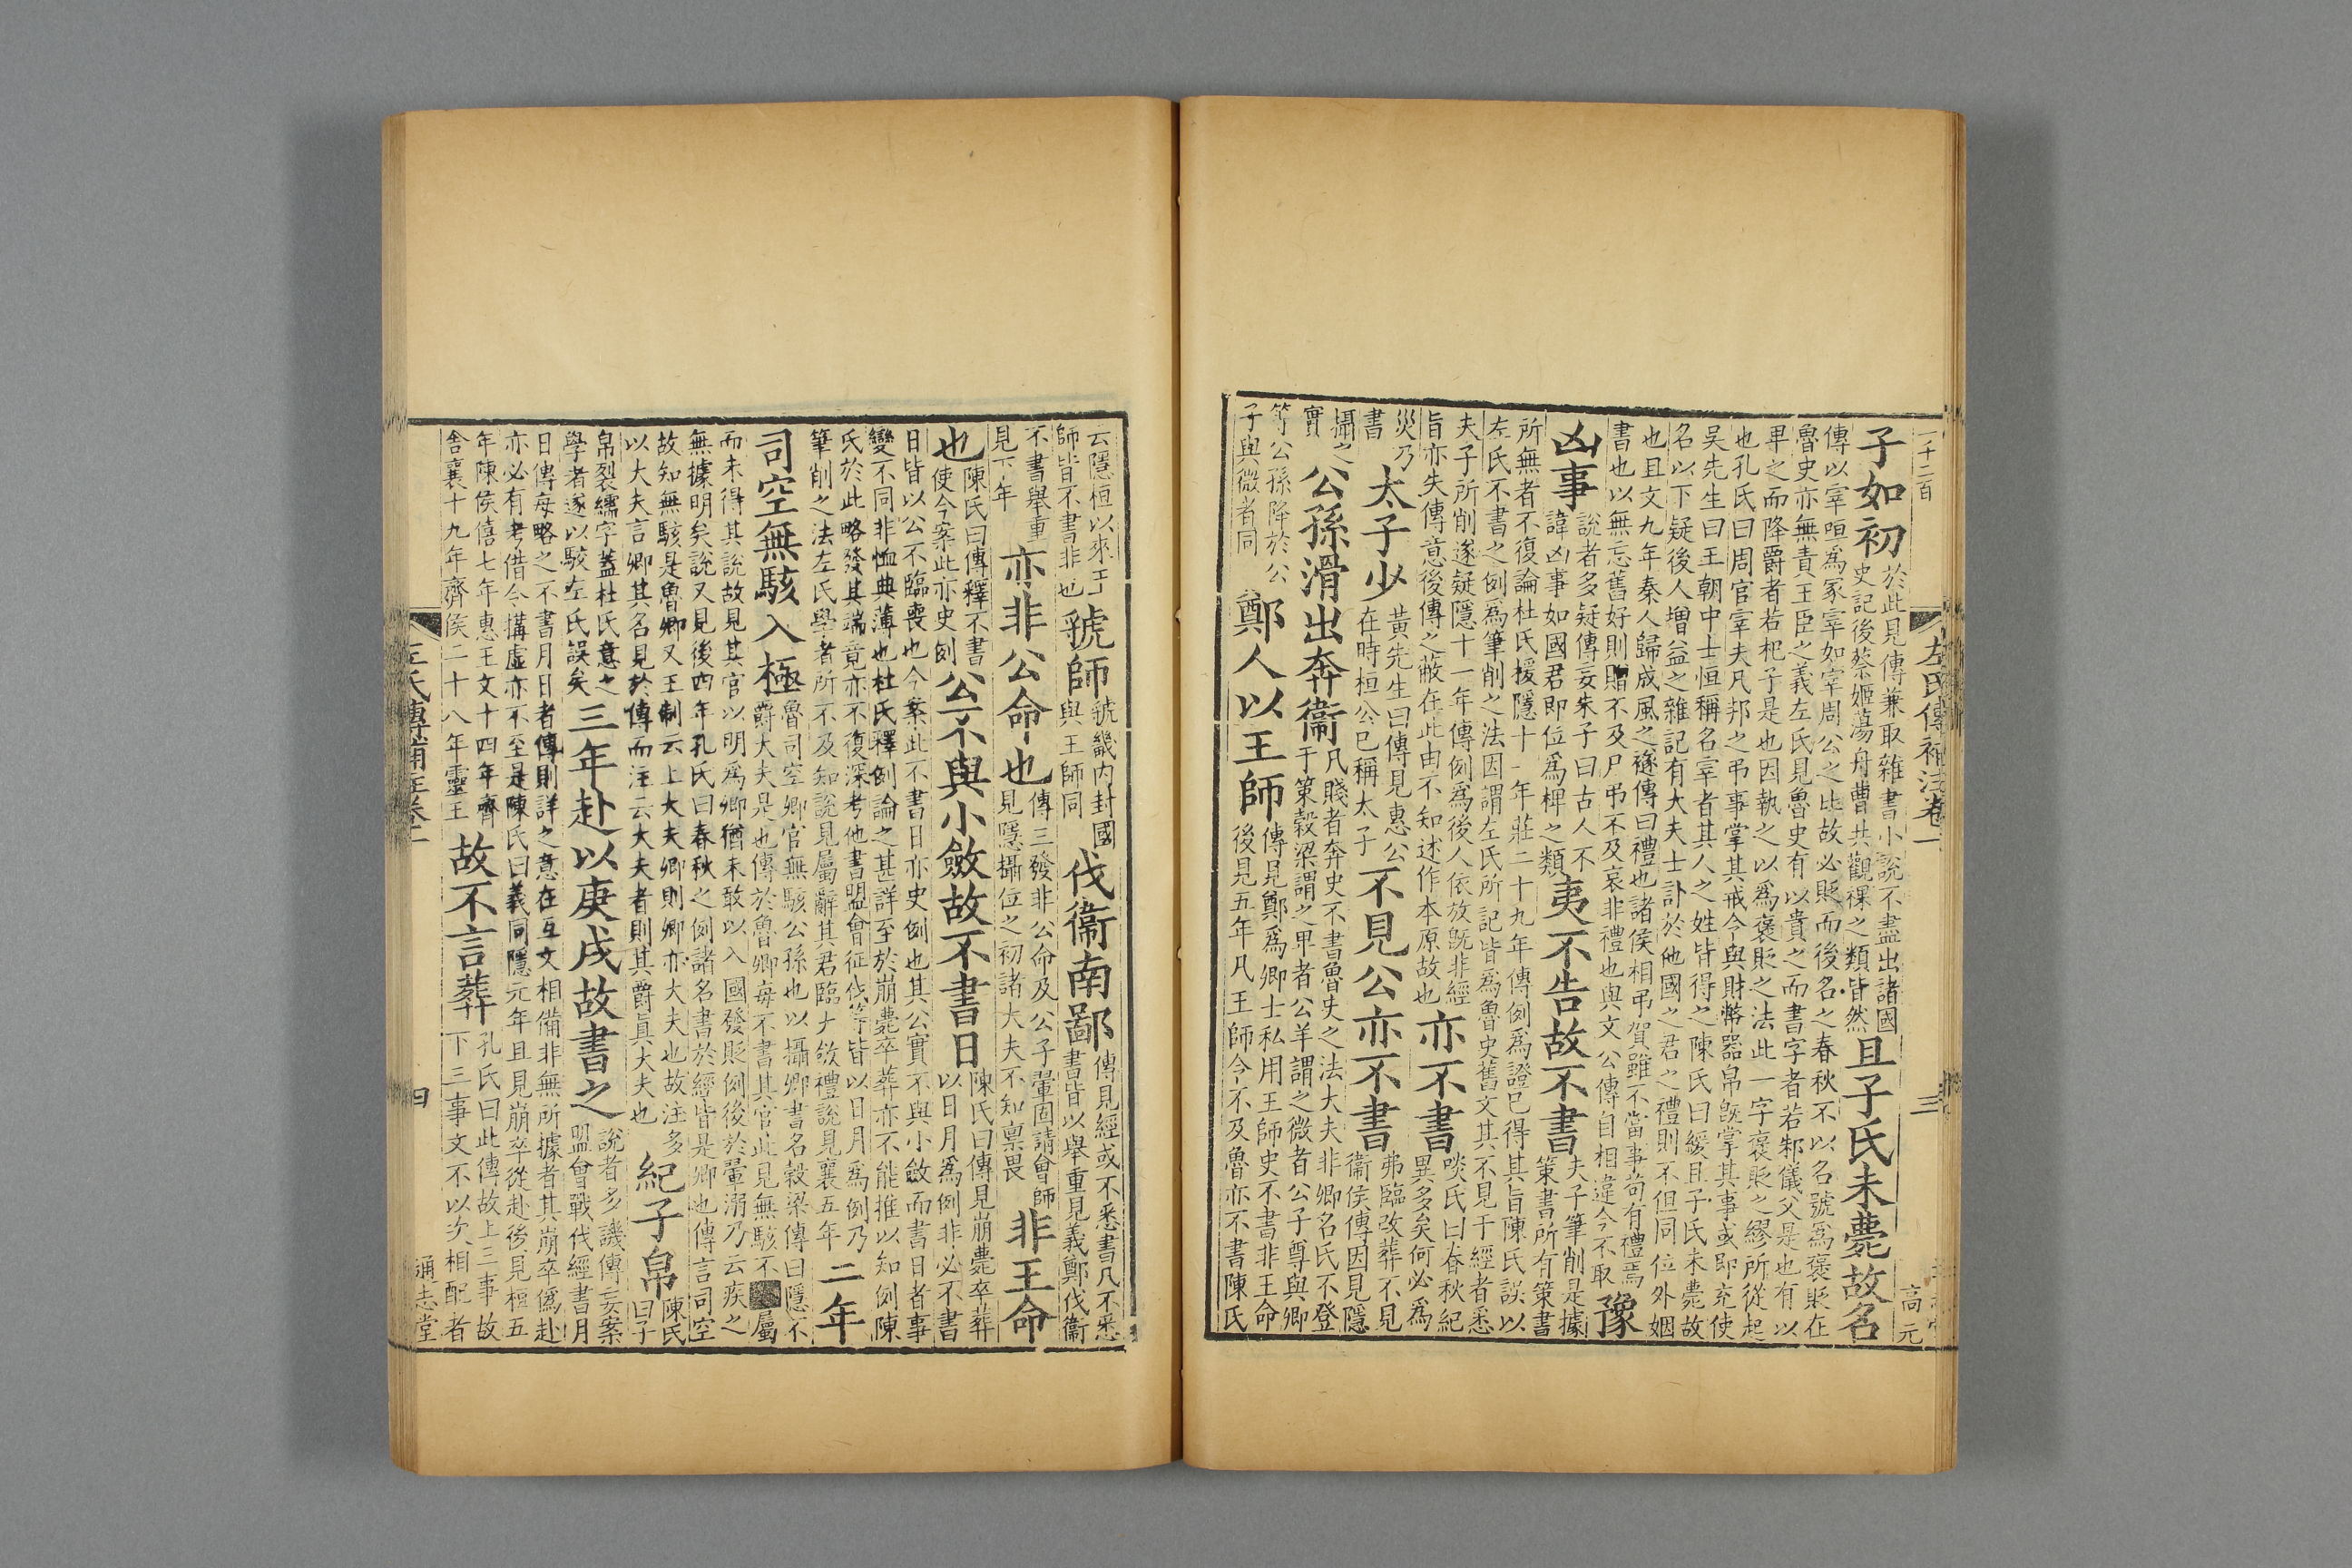 一千二百
左氏傳補注卷一
三
高元
子如初
於此見傳兼取雜書小說不盡出諸國
史記後蔡姬蕩舟曹共觀裸之類皆然
且子氏未薨故名
傳以宰咺爲冢宰如宰周公之比故必貶而後名之春秋不以名號爲褒貶在
魯史亦無責王臣之義左氏見魯史有以貴之而書字者若邾儀父是也有以
卑之而降爵者若杞子是也因執之以爲褒貶之法此一字褒貶之繆所從起
也孔氏曰周官宰夫凡邦之弔事掌其戒令與財幣器帛旣掌其事或即充使
吳先生曰王朝中士恒稱名宰者其人之姓皆得之陳氏曰緩且子氏未薨故
名以下疑後人增益之雜記有大夫士訃於他國之君之禮則不但同位外姻
也且文九年秦人歸成風之襚傳曰禮也諸侯相弔賀雖不當事苟有禮焉
書也以無忘舊好則賵不及尸弔不及哀非禮也與文公傳自相違今不取
豫
凶事
說者多疑傳妄朱子曰古人不
諱凶事如國君即位爲椑之類
夷不告故不書
夫子筆削是據
策書所有策書
所無者不復論杜氏援隱十一年莊二十九年傳例爲證已得其旨陳氏誤以
左氏不書之例爲筆削之法因謂左氏所記皆爲魯史舊文其不見于經者悉
夫子所削遂疑隱十一年傳例爲後人依放旣非經
旨亦失傳意後傳之蔽在此由不知述作本原故也
亦不書
啖氏曰春秋紀
異多矣何必爲
災乃
書
太子少
黃先生曰傳見惠公
在時桓公已稱太子
不見公亦不書
弗臨改葬不見
衞侯傳因見隱
攝之
實
公孫滑出奔衞
凡賤者奔史不書魯史之法大夫非卿名氏不登
于策穀梁謂之卑者公羊謂之微者公子尊與卿
等公孫降於公
子與微者同
鄭人以王師
傳見鄭爲卿士私用王師史不書非王命
後見五年凡王師令不及魯亦不書陳氏
云隱桓以來王
師皆不書非也
虢師
虢畿內封國
與王師同
伐衞南鄙
傳見經或不悉書凡不悉
書皆以舉重見義鄭伐衞
不書舉重
見下年
亦非公命也
傳三發非公命及公子翬固請會師
見隱攝位之初諸大夫不知禀畏
非王命
也
陳氏曰傳釋不書
使今案此亦史例
公不與小斂故不書日
陳氏曰傳見崩薨卒葬
以日月爲例非必不書
日皆以公不臨喪也今案此不書日亦史例也其公實不與小斂而書日者事
變不同非恤典薄也杜氏釋例論之甚詳至於崩薨卒葬亦不能推以知例陳
氏於此略發其端竟亦不復深考他書盟會征伐等皆以日月爲例乃
筆削之法左氏學者所不及知說見屬辭其君臨大斂禮說見襄五年
二年
司空無駭入極
魯司空卿官無駭公孫也以攝卿書名穀梁傳曰隱不
爵大夫是也傳於魯卿每不書其官此見無駭不屬
而未得其說故見其官以明爲卿猶未敢以入國發貶例後於翬溺乃云疾之
無據明矣說又見後四年孔氏曰春秋之例諸名書於經皆是卿也傳言司空
故知無駭是魯卿又王制云上大夫卿則卿亦大夫也故注多
以大夫言卿其名見於傳而注云大夫者則其爵眞大夫也
紀子帛
陳氏
曰子
帛裂繻字蓋杜氏意之
學者遂以駮左氏誤矣
三年赴以庚戌故書之
說者多譏傳妄案
盟會戰伐經書月
日傳每略之不書月日者傳則詳之意在互文相備非無所據者其崩卒僞赴
亦必有考借令搆虛亦不至是陳氏曰義同隱元年且見崩卒從赴後見桓五
年陳侯僖七年惠王文十四年齊
舍襄十九年齊侯二十八年靈王
故不言葬
孔氏曰此傳故上三事故
下三事文不以次相配者
左氏傳補注卷一
四
通志堂